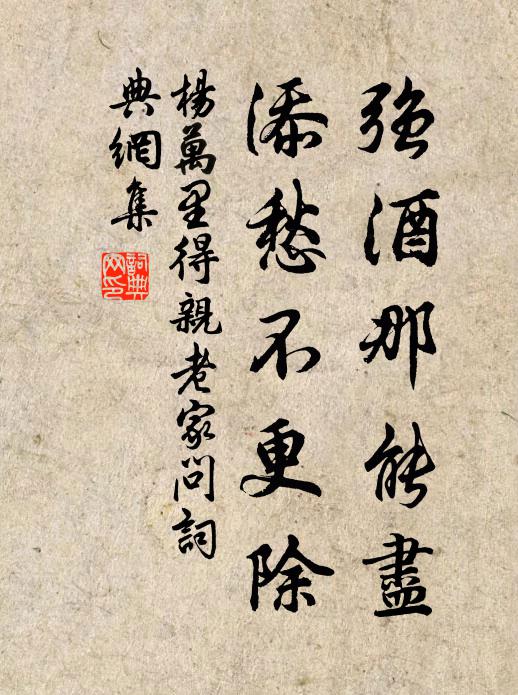 强酒那能盡
添愁不更除
楊萬里得親老家問詞
典網集
詞典
網印